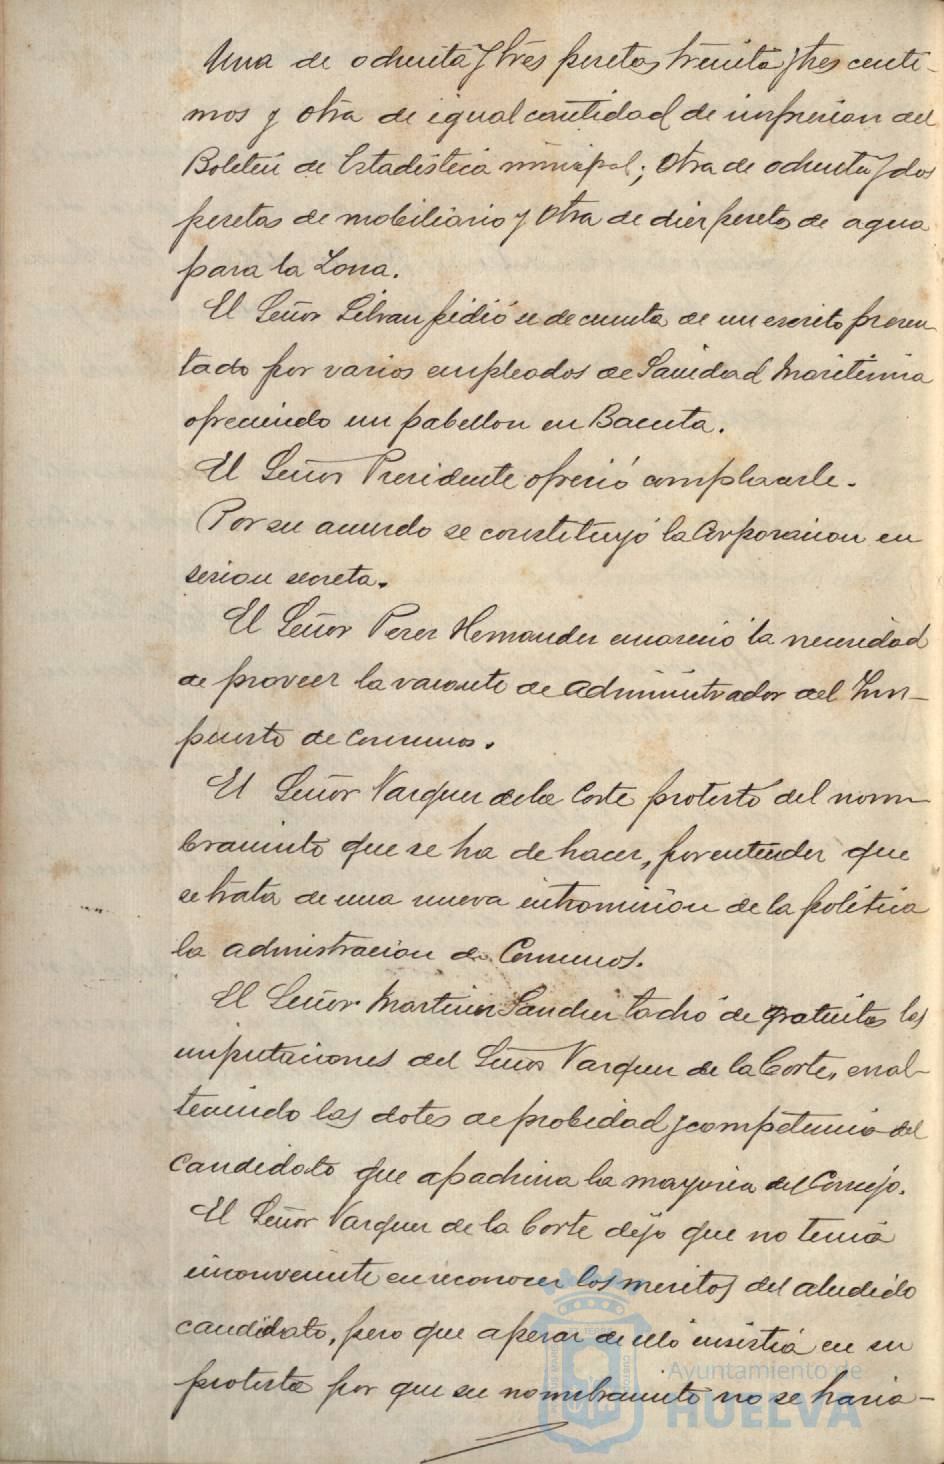 Una de ochenta y tres pesetas treinta y tres centi-
mos y otra de igual cantidad de impresion del
Boletin de Estadistica municipal; otra de ochenta y dos
pesetas de mobiliario y otra de diez pesetas de agua
para la Zona.
El Señor Silvan pidió se de cuenta de un escrito presen
tado por varios empleados de Sanidad Maritima
ofreciendo un pabellon en Bacuta.
El Señor Presidente ofreció complacerle.
Por su acuerdo se constituyó la Corporacion en
sesion secreta.
El Señor Perez Hernandez encareció la necesidad
de proveer la vacante de administrador del Im-
puesto de Consumos.
El Señor Vazquez de la Corte protestó del nom-
bramiento que se ha de hacer, por entender que
se trata de una nueva intromision de la politica
la administracion de Consumos.
El Señor Martinez Sanchez tachó de gratuitas las
imputaciones del Señor Vazquez de la Corte, enal-
teciendo las dotes de probidad y competencia del
candidato que apadrina la mayoria del Concejo.
El Señor Vazquez de la Corte dijo que no tenia
inconveniente en reconocer los meritos del aludido
candidato, pero que a pesar de ello insistia en su
protesta por que su nombramiento no se haria-
Ayuntamiento de
HUELVA